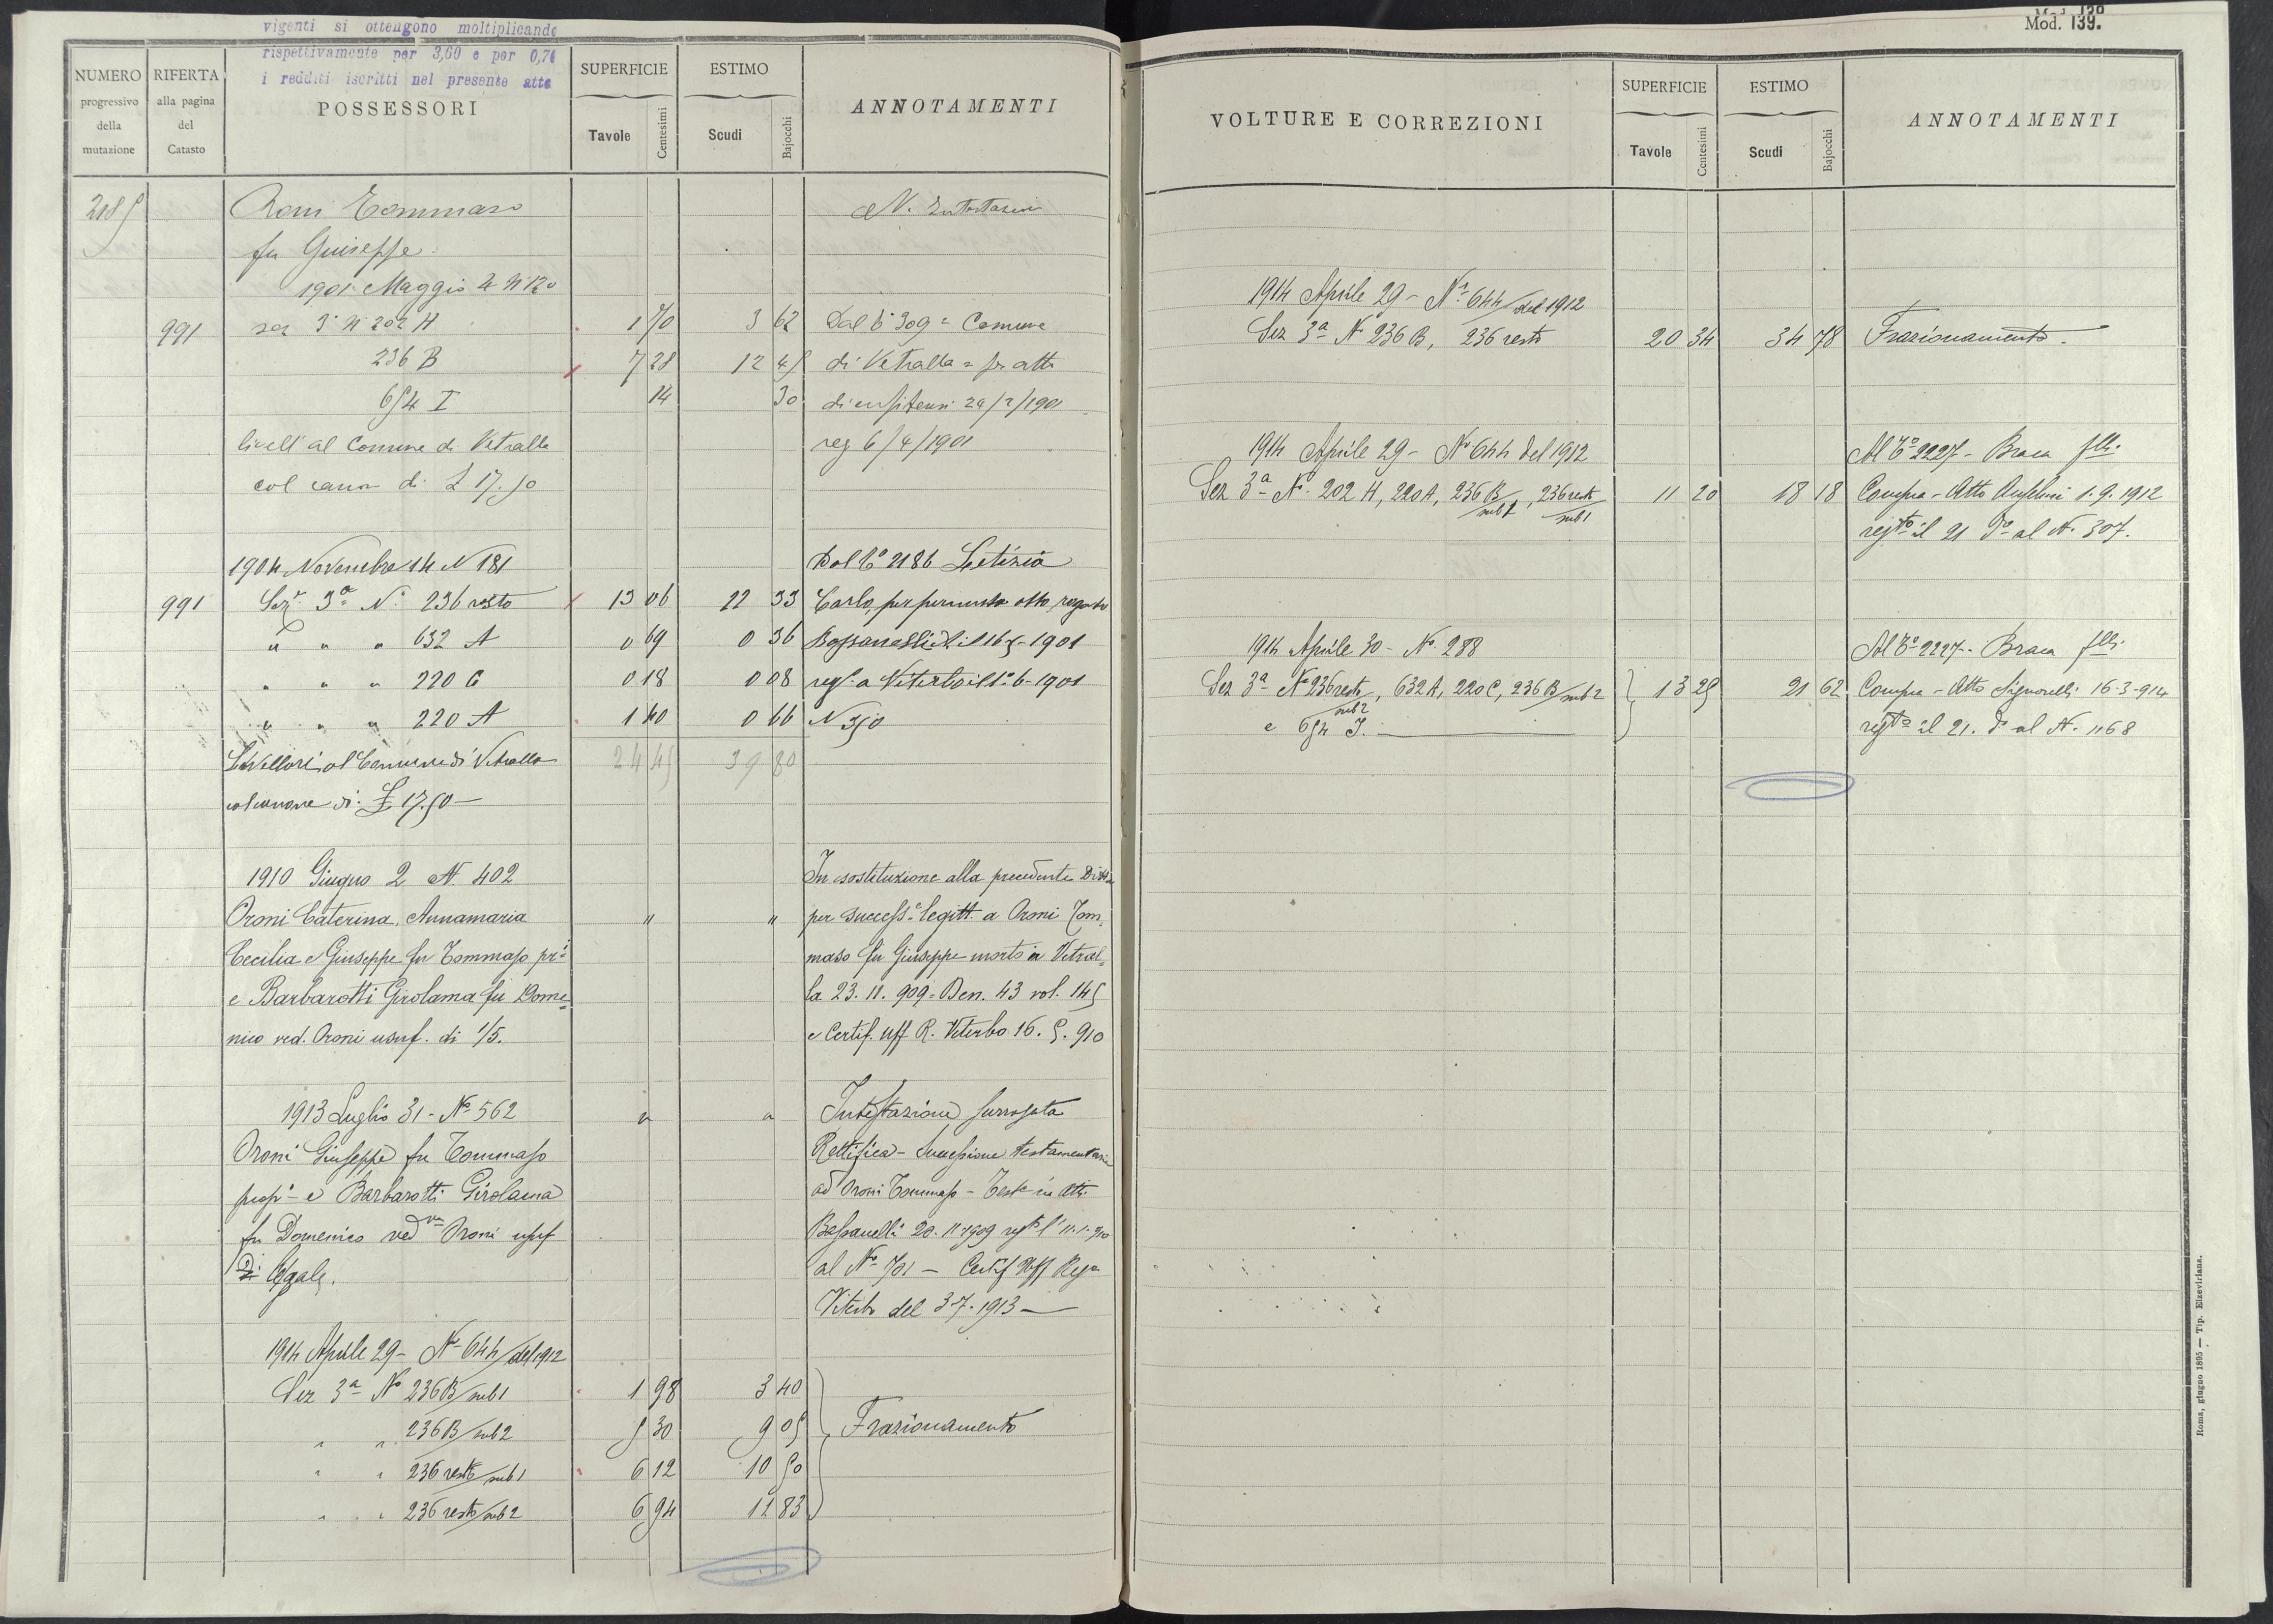 vigenti si ottengono moltiplicando
rispettivamente per 3,60 e per 0,74
i redditi iscritti nel presente atto
NUMERO progressivo della mutazione
RIFERTA alla pagina del Catasto
POSSESSORI
SUPERFICIE
Tavole Centesimi
ESTIMO
Scudi Bajocchi
ANNOTAMENTI
2185 Oroni Tommaso N. Intestazione
fu Giuseppe
1901 Maggio 4 N 120
991 sez 3ª N 202 H 1 70 3 62 Dal Cº 309 = Comune
236 B 7 28 12 45 di Vetralla = per atti
654 I 14 30 di enfiteusi 24/2/1901
livell al Comune di Vetralla reg 6/4/1901
col canon di £ 17.50
1904 Novembre 14 N 181 Dal Cº 2186 Letizia
991 Sezº 3ª Nº 236 resto 13 06 22 33 Carlo, per permuta atto rogato
" " " 632 A 0 69 0 36 Bassanelli li 16-5-1901
" " " 220 C 0 18 0 08 regº a Viterbo il 1º-6-1901
" " " 220 A 1 40 0 66 N 350
Livellari al Comune di Vetralla 24 45 39 80
col canone di £ 17.50 —
1910 Giugno 2 N. 402 In sostituzione alla precedente Ditta
Oroni Caterina, Annamaria " " per successº legitt. a Oroni Tom=
Cecilia e Giuseppe fu Tommaso prˡ maso fu Giuseppe morto a Vetral=
e Barbarotti Girolama fu Dome= la 23. 11. 909 = Den. 43 vol. 145
nico ved. Oroni usuf. di 1/5. e Certif. Uff R. Viterbo 16. 5. 910
1913 Luglio 31 - Nº 562 " " Intestazione surrogata
Oroni Giuseppe fu Tommaso Rettifica - Successione testamentaria
propˡ e Barbarotti Girolama ad Oroni Tommaso - Testº in Atti
fu Domenico vedᵛᵃ Oroni usuf Bassanelli 20. 11-1909 regº l' 11.1.910
Di legale. al Nº 701 — Certif Uff Regº
Viterbo del 3-7-1913 —
1914 Aprile 29 - Nº 644/del 1912
Sez 3ª Nº 236 B/sub 1 1 98 3 40
" " 236 B/sub 2 5 30 9 05 Frazionamento
" " 236 resto/sub 1 6 12 10 50
" " 236 resto/sub 2 6 94 11 83
Mod. 139.
VOLTURE E CORREZIONI
SUPERFICIE
Tavole Centesimi
ESTIMO
Scudi Bajocchi
ANNOTAMENTI
1914 Aprile 29 - Nº 644/del 1912
Sez 3ª Nº 236 B, 236 resto 20 34 34 78 Frazionamento.
1914 Aprile 29 - Nº 644 del 1912 Al Cº 2227 - Braca flli.
Sez 3ª Nº 202 H, 220 A, 236 B/sub 1, 236 resto/sub 1 11 20 18 18 Compra - Atto Anselmi 1.9.1912
regᵗº il 21 dº al N. 307.
1914 Aprile 30 - Nº 288 Al Cº 2227 - Braca flli.
Sez 3ª Nº 236 resto/sub 2, 632 A, 220 C, 236 B/sub 2 13 25 21 62 Compra - Atto Signorelli 16-3-914
e 654 I. — regᵗº il 21. dº al N. 1168
Roma, giugno 1895 — Tip. Elzeviriana.